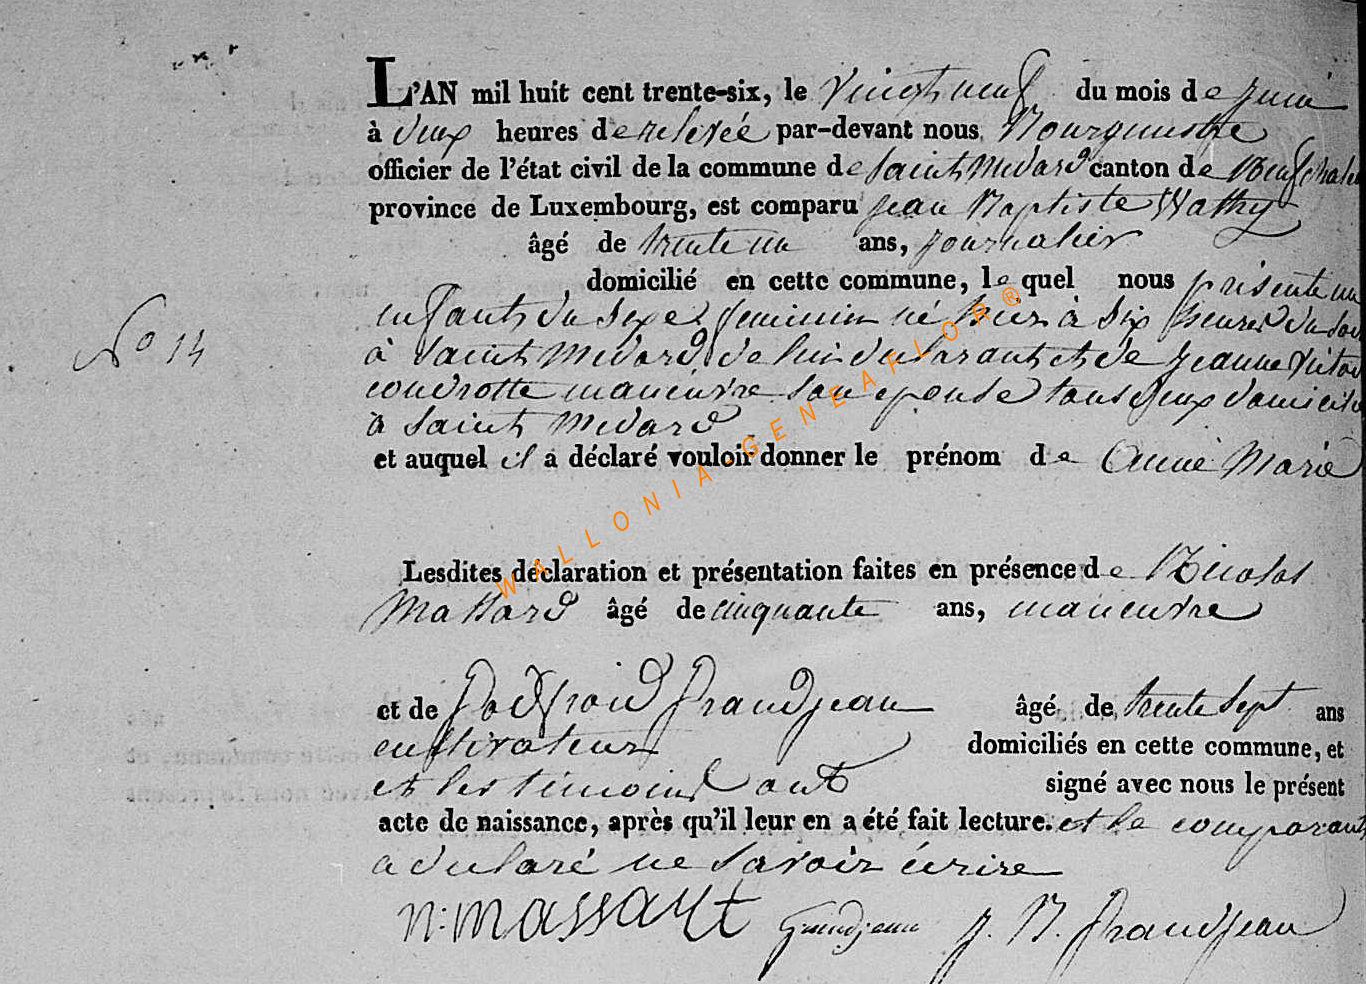 L'AN mil huit cent trente-six, le Vingt neuf du mois de juin
à deux heures de relevée par-devant nous Bourgmestre
officier de l'état civil de la commune de Saint Medard canton de Neufchateau
province de Luxembourg, est comparu jean Baptiste Wathy
âgé de trente un ans, journalier
domicilié en cette commune, lequel nous présente un
enfant du sexe feminin né hier à six heures du soir
No 14
à Saint Medard de lui declarant et de jeanne
manœuvre son epouse tous deux domicilié
à Saint Medard
et auquel il a déclaré vouloir donner le prénom de Anne Marie
Lesdites déclaration et présentation faites en présence de Nicolas
Massard âgé de cinquante ans, manœuvre
et de Godfroid Grandjean âgé de trente sept ans
cultivateur domiciliés en cette commune, et
et les témoins ont signé avec nous le présent
acte de naissance, après qu'il leur en a été fait lecture. et le comparant
a declaré ne savoir écrire
n: massart Grandjean J. B. Grandjean
WALLONIA-GENEAFLOR®